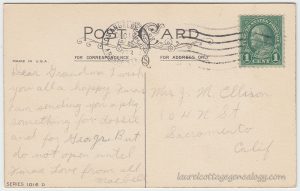 POST CARD
MADE IN U.S.A.
FOR CORRESPONDENCE
FOR ADDRESS ONLY
1 CENT 1
Dear Grandma I wish
you all a happy Xmas
I am sending you a pkg
something for dossie
and for George. But
do not open until
Xmas Love from all
Mrs J. M. Ellison
Sacramento
Calif
SERIES 1016 D
laurelcottagegenealogy.com